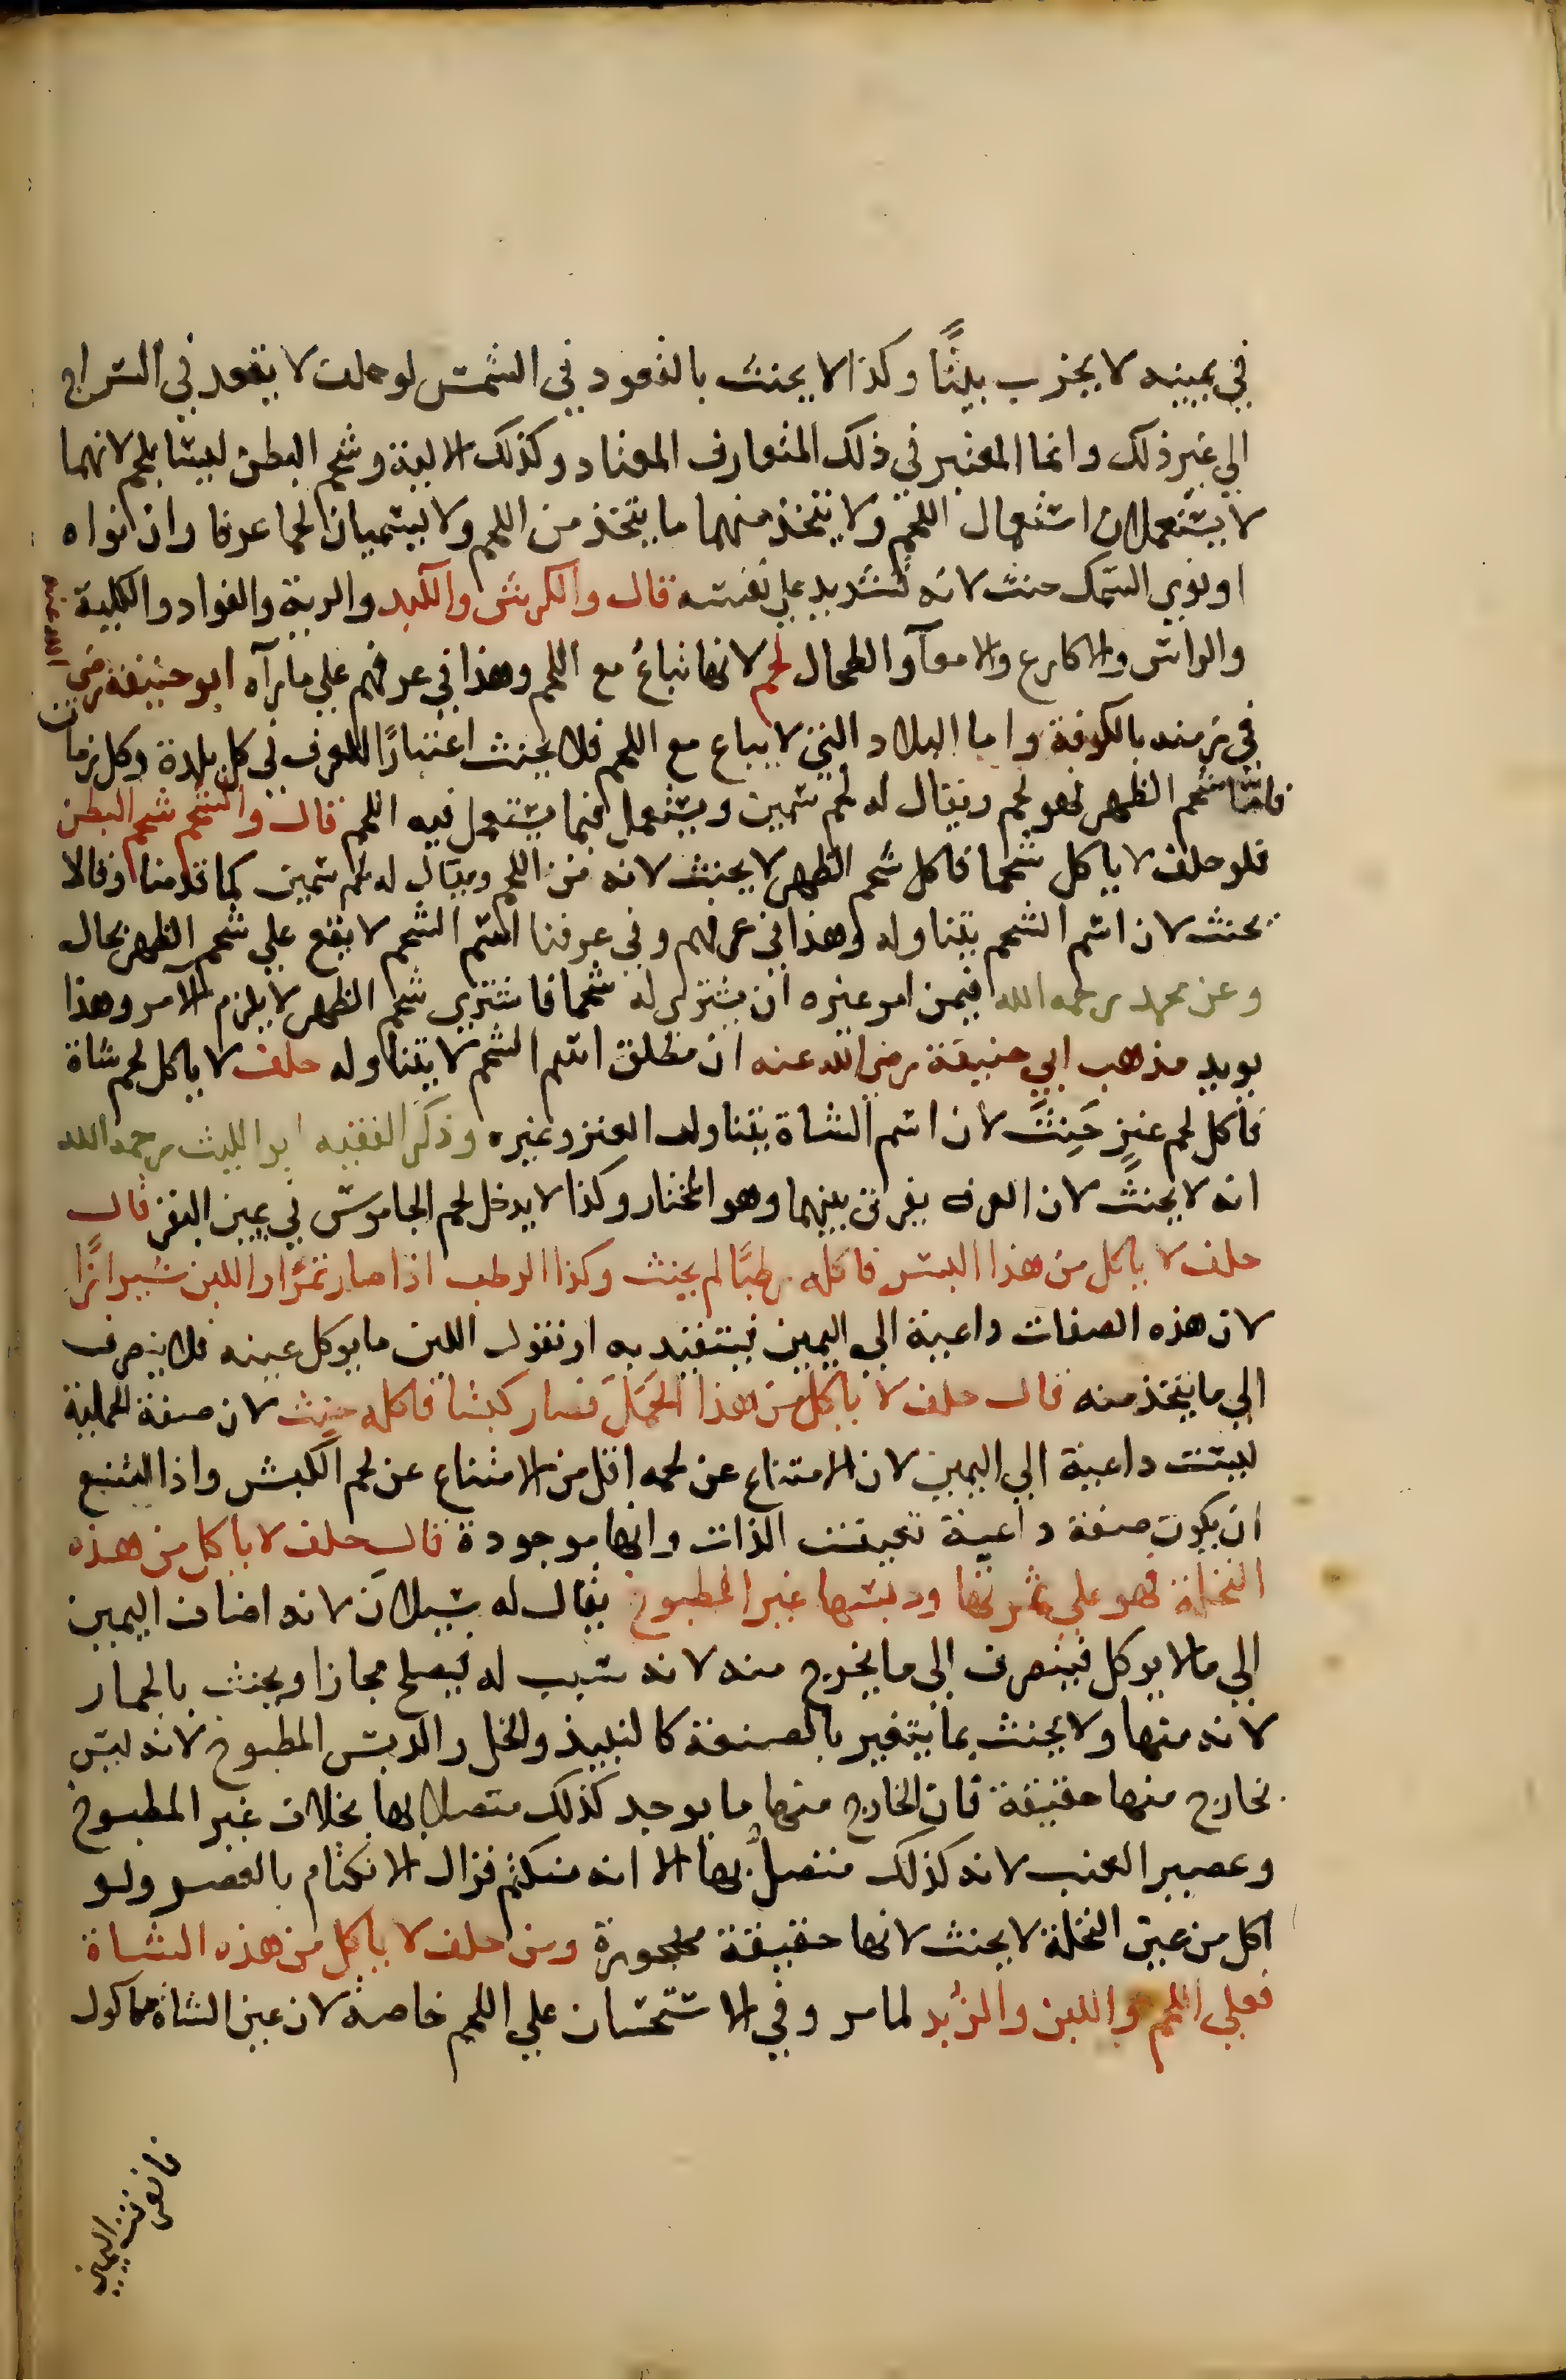 في يمينه لا يخرب بيتًا وكذا لا يحنث بالقعود في الشمس لو حلف لا يقعد في السراج
الي غير ذلك وانما المعتبر في ذلك المتعارف المعتاد وكذلك الالية وشحم البطن ليسا بلحم لانهما
لا يستعملان استعمال اللحم ولا يتخذ منهما ما يتخذ من اللحم ولا يسميان لحما عرفا وان نواه
او نوي السمك حنث لانه تشديد علي نفسه قال والكرش والكبد والرية والفواد والكلية
والراس والاكارع والامعآ والطحال لحم لانها تباع مع اللحم وهذا في عرفهم علي ما رآه ابو حنيفة رضي الله عنه
في زمنه بالكوفة واما البلاد التي لا يباع مع اللحم فلا يحنث اعتبارًا للعرف في كل بلدة وكل زمان
فاما شحم الظهر فهو لحم ويقال له لحم سمين ويستعمل فيما يستعمل فيه اللحم قال والشحم شحم البطن
فلو حلف لا ياكل شحما فاكل شحم الظهر لا يحنث لانه من اللحم ويقال له لحم سمين كما قدمنا وقالا
يحنث لان اسم الشحم يتناوله وهذا في عرفهم وفي عرفنا اسم الشحم لا يقع علي شحم الظهر بحال
وعن محمد رحمه الله فيمن امر غيره ان يشتري له شحما فاشتري شحم الظهر لا يلزم الآمر وهذا
يويد مذهب ابي حنيفة رضي الله عنه ان مطلق اسم الشحم لا يتناوله حلف لا ياكل لحم شاة
فاكل لحم عنزٍ حَنِثَ لان اسم الشاة يتناول العنز وغيره وذكر الفقيه ابو الليث رحمه الله
انه لا يحنث لان العرف يفرق بينهما وهو المختار وكذا لا يدخل لحم الجاموس في يمين البقر قال
حلف لا ياكل من هذا البسر فاكله رطبًا لم يحنث وكذا الرطب اذا صار تمرًا واللبن شيرازًا
لان هذه الصفات داعية الي اليمين فيتقيد به او نقول اللبن ما يوكل عينه فلا ينصرف
الي ما يتخذ منه قال حلف لا ياكل من هذا الحَمَلَ فصار كبشا فاكله حنث لان صفة الحملية
ليست داعية الي اليمين لان الامتناع عن لحمه اقل من الامتناع عن لحم الكبش واذا امتنع
ان يكون صفة داعية تعينت الذات وانها موجودة قال حلف لا ياكل من هذه
النخلة فهو علي ثمرتها ودبسها غير المطبوخ يقال له سيلان لانه اضاف اليمين
الي ما لا يوكل فينصرف الي ما يخرج منه لانه سبب له فيصلح مجازا ويحنث بالجمار
لانه منها ولا يحنث بما يتغير بالصنعة كالنبيذ والخل والدبس المطبوخ لانه ليس
بخارج منها حقيقة فان الخارج منها ما يوجد كذلك متصلا بها بخلاف غير المطبوخ
وعصير العنب لانه كذلك متصلٌ بها الا انه منكتم فزال الانكتام بالعصر ولو
اكل من عين النخلة لا يحنث لانها حقيقة مهجورة ومن حلف لا ياكل من هذه الشاة
فعلي اللحم واللبن والزبد لما مر وفي الاستحسان علي اللحم خاصة لان عين الشاة ماكول
فانصرفت اليمين